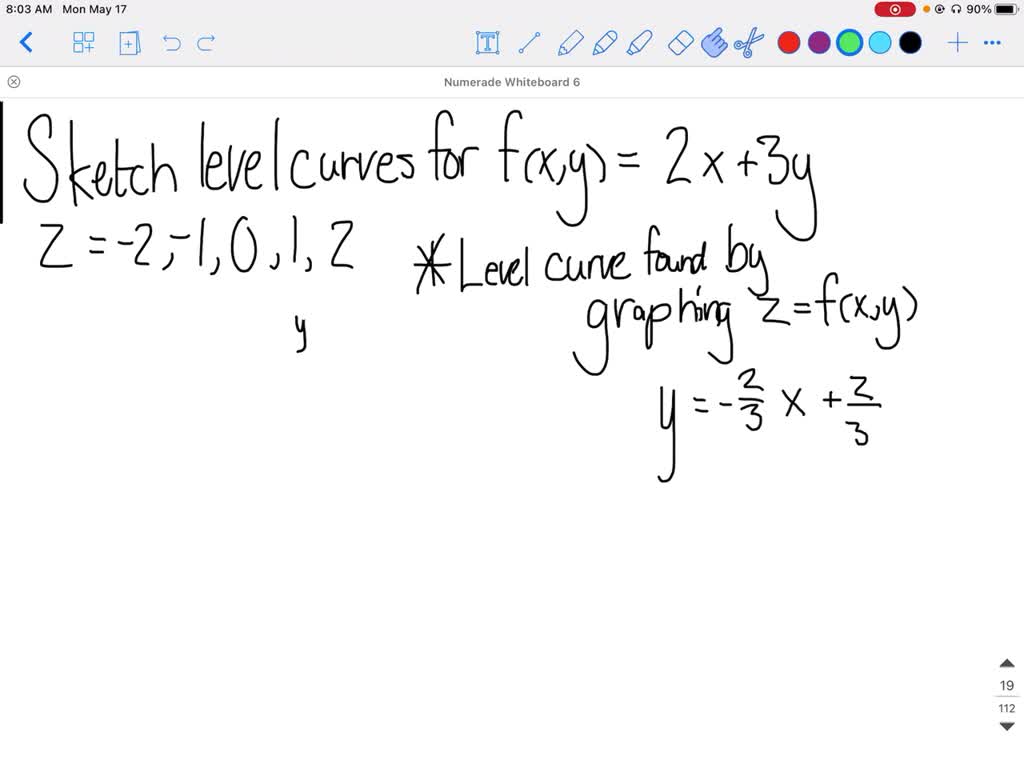 8:03 AM Mon May 17 90%
Numerade Whiteboard 6
Sketch level curves for f(x,y) = 2x+3y
z = -2, -1, 0, 1, 2
* Level curve found by
graphing z = f(x,y)
y
y = -2/3 x + z/3
19
112